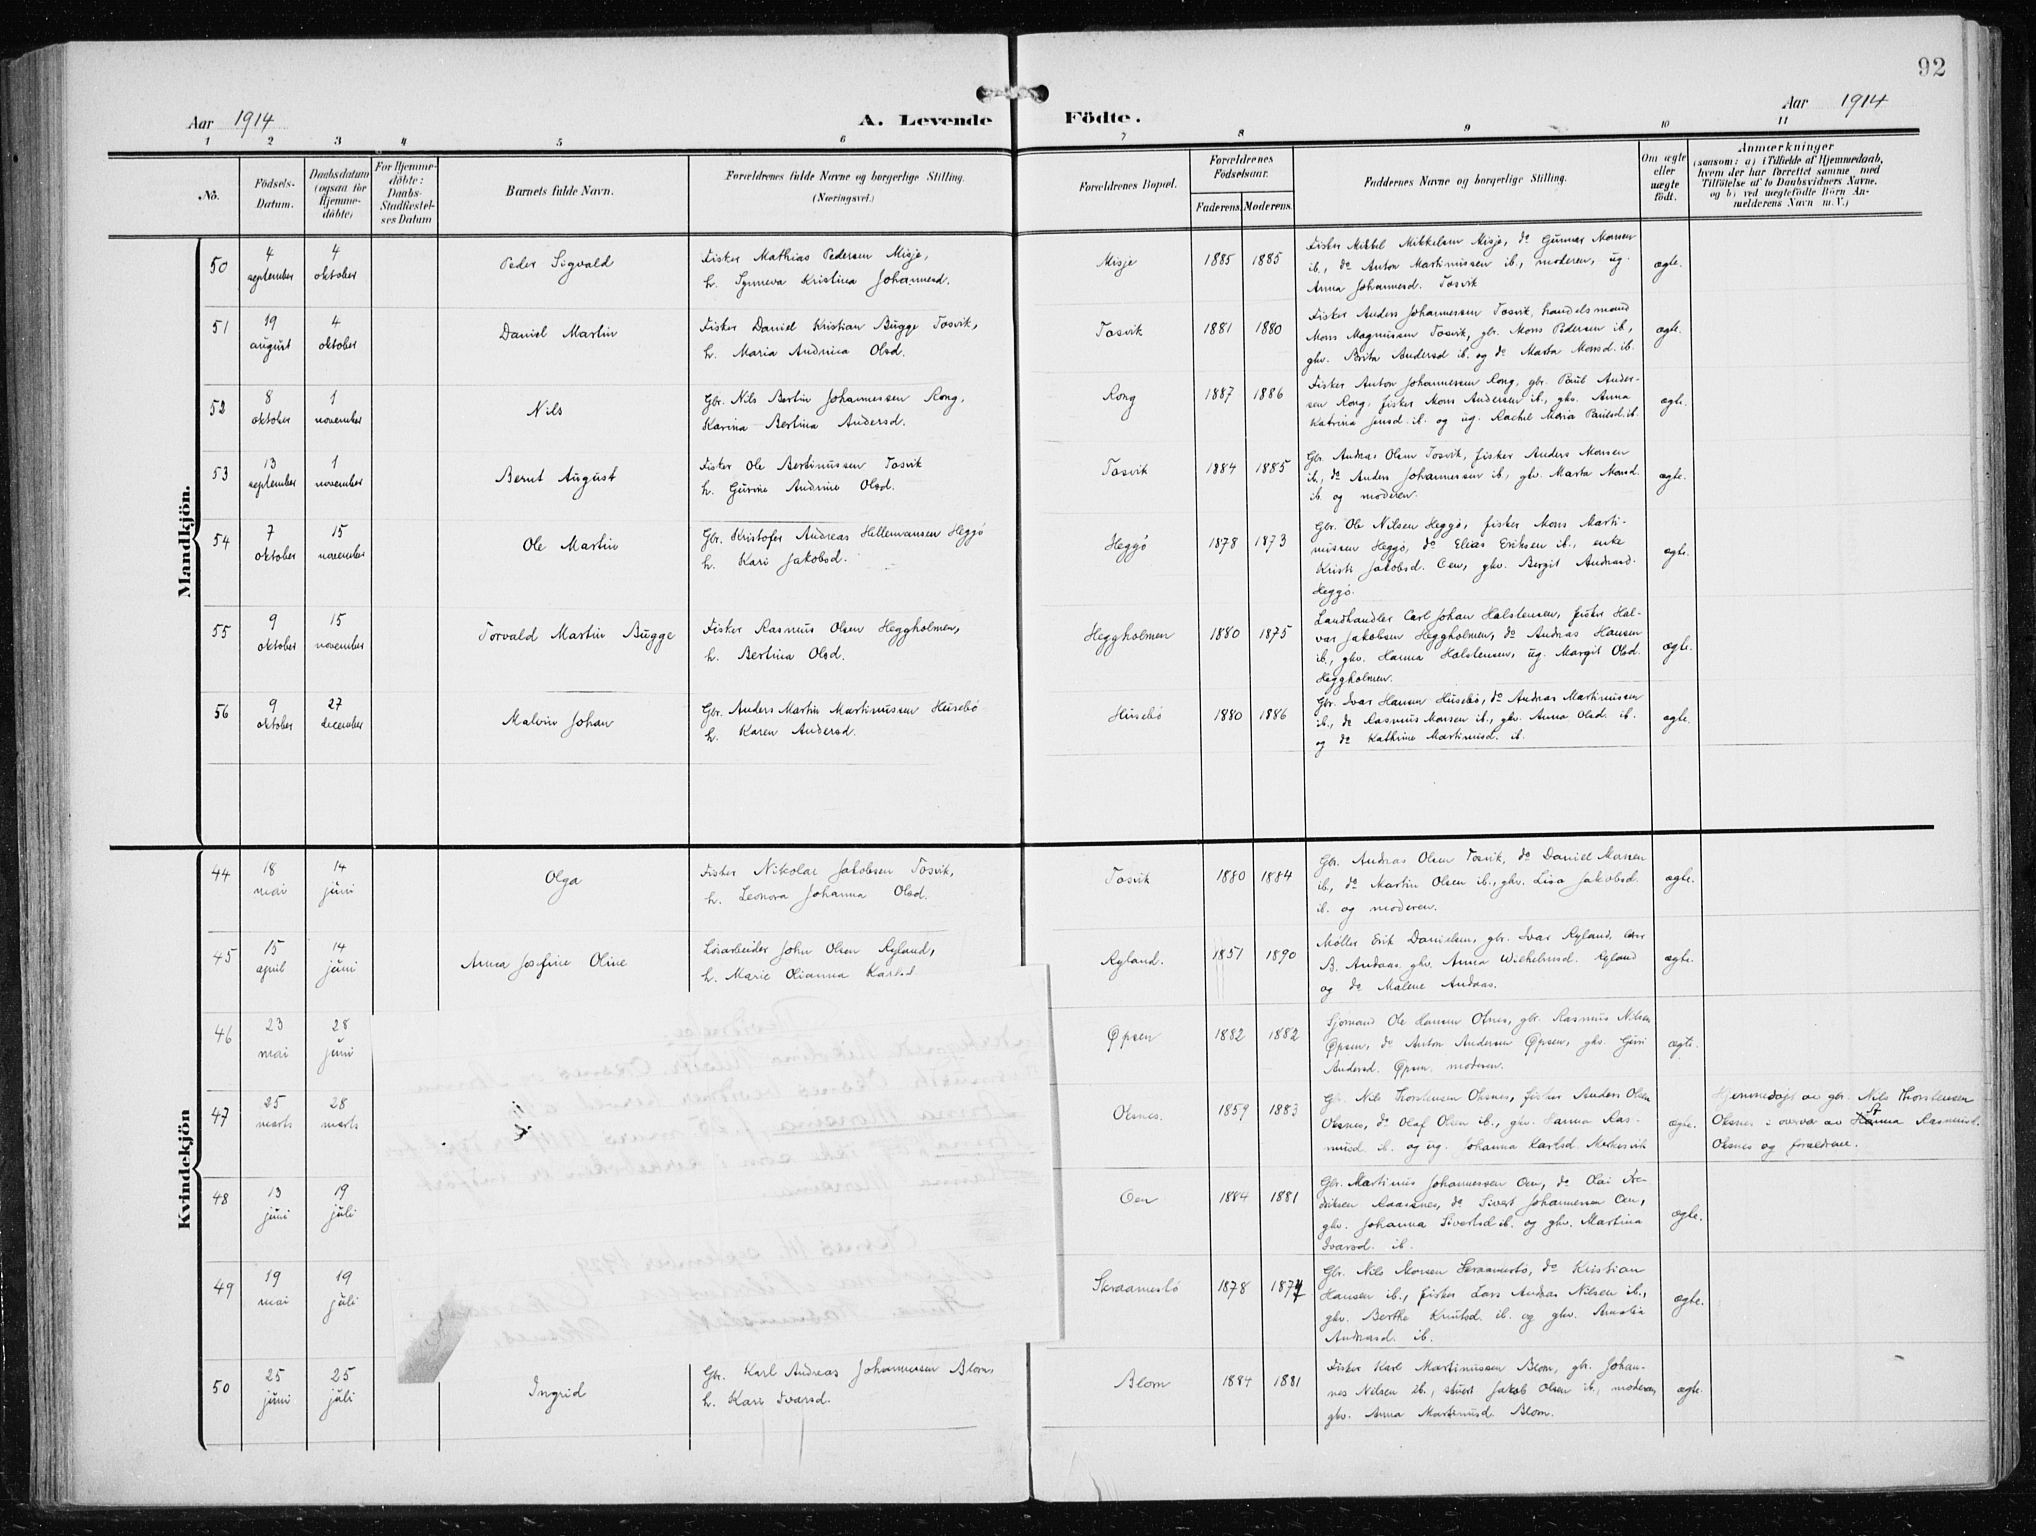 92
Aar 1914
A. Levende Födte.
Aar 1914
1 2 3 4 5 6 7 8 9 10 11
No.
Födsels-Datum.
Daabsdatum (ogsaa for Hjemme-döbte)
For Hjemme-döbte: Daabs-Stadfæstel-ses Datum
Barnets fulde Navn.
Forældrenes fulde Navne og borgerlige Stilling.
(Næringsvei.)
Forældrenes Bopæl.
Forældrenes Födselsaar.
Faderens. Moderens.
Faddernes Navne og borgerlige Stilling.
Om ægte eller uægte födt.
Anmærkninger
(saasom: a) i Tilfælde af Hjemmedaab,
hvem der har forrettet samme med
Tilföielse af to Daabsvidners Navne,
og b) ved uægtefödte Börn An-
melderens Navn m. V.)
Mandkjön.
50
4 september
4 oktober
Peder Sigvald
Fisker Mathias Pedersen Misje,
h. Synneva Kristina Johannesd.
Misje
1885 1885
Fisker Mikkel Mikkelsen Misje, do Gunnar Monsen
ib., do Anton Martinussen ib., moderen, ug.
Anna Johannesd. Tosvik
ægte.
51
19 august
4 oktober
Daniel Martin
Fisker Daniel Kristian Bugge Tosvik,
h. Maria Andrica Olsd.
Tosvik
1881 1880
Fisker Anders Johannessen Tosvik, handelsmand
Mons Magnussen Tosvik, gbr. Mons Pedersen ib.,
ghv. Brita Andersd ib. og do Marta Monsd. ib.
ægte.
52
8 oktober
1 november
Nils
Gbr. Nils Bertin Johannessen Rong,
Karina Bertina Andersd.
Rong
1887 1886
Fisker Anton Johannessen Rong, gbr. Paul Ander-
sen Rong, fisker Mons Andersen ib., ghv. Anna
Katrina Jensd. ib. og ug. Rachel Maria Paulsd. ib.
ægte.
53
13 september
1 november
Bernt August
Fisker Ole Bertinussen Tosvik
h. Gurine Andrine Olsd.
Tosvik
1884 1885
Gbr. Andras Olsen Tosvik, fisker Anders Monsen
ib., do Anders Johannessen ib., ghv. Marta Monsd.
ib. og moderen.
ægte.
54
7 oktober
15 november
Ole Martin
Gbr. Kristofer Andreas Hillemansen Heggö
h. Kari Jakobsd.
Heggö
1878 1873
Gbr. Ole Nilsen Heggö, fisker Mons Marti-
nussen Heggö, do Elias Eriksen ib., enke
Kristi Jakobsd. Oen, ghv. Bergit Andrasd.
Heggö.
ægte.
55
9 oktober
15 november
Torvald Martin Bugge
Fisker Rasmus Olsen Heggholmen,
h. Bertina Olsd.
Heggholmen
1880 1875
Landhandler Carl Johan Halstensen, fisker Hal-
var Jakobsen Heggholmen, do Andras Hansen
ib., ghv. Hanna Halstensen, ug. Margit Olsd.
Heggholmen.
ægte.
56
9 oktober
27 december
Malvin Johan
Gbr. Anders Martin Martinussen Husebö
h. Karen Andersd.
Husebö
1880 1886
Gbr. Ivar Hansen Husebö, do Andras Martinussen
ib., do Rasmus Monsen ib., ghv. Anna Olsd. ib.
og do Kathrine Martinusd. ib.
ægte.
Kvindekjön
44
18 mai
14 juni
Olga
Fisker Nikolai Jakobsen Tosvik,
h. Leonora Johanna Olsd.
Tosvik
1880 1884
Gbr. Andras Olsen Tosvik, do Daniel Monsen
ib., do Martin Olsen ib., ghv. Lisa Jakobsd.
ib. og moderen.
ægte.
45
15 april
14 juni
Anna Josefine Oline
Løsarbeider John Olsen Ryland,
h. Marie Olianna Karlsd.
Ryland.
1851 1890
Møller Erik Danielsen, gbr. Ivar Ryland,
B. Andaas, ghv. Anna Wilhelmsd. Ryland
og do Malene Andaas.
ægte.
46
23 mai
28 juni
Øpsen
1882 1882
Sjømand Ole Hansen Olsnes, gbr. Rasmus Nilsen
Øpsen, do Anton Andersen Øpsen, ghv. Guri
Andersd. Øpsen, moderen.
ægte.
47
25 marts
28 marts
Olsnes.
1859 1883
Gbr. Nils Thorstensen Olsnes, fisker Anders Olsen
Olsnes, do Olaf Olsen ib., ghv. Hanna Ras-
musd. ib. og ug. Johanna Karlsd.
ægte.
Hjemmedøpt av gbr. Nils Thorstensen
Olsnes i overvær av Hanna Rasmusd.
Olsnes og forældrene.
48
13 juni
19 juli
Oen
1884 1881
Gbr. Martinus Johannessen Oen, do Olai Fre-
driksen Raasnes, do Sivert Johannessen Oen,
ghv. Johanna Sivertsd. ib. og ghv. Martina
Ivarsd. ib.
ægte.
49
19 mai
19 juli
Skraamestö
1878 1877
Gbr. Nils Monsen Skraamestö, do Kristian
Hansen ib., fisker Lars Andras Nilsen ib.,
ghv. Berthe Knutsd. ib. og ghv. Amalia
Andrasd. ib.
ægte.
50
25 juni
25 juli
Ingrid
Gbr. Karl Andreas Johannessen Blom,
h. Kari Ivarsd.
Blom
1884 1881
Fisker Karl Martinussen Blom, gbr. Johan-
nes Nilsen ib., stuert Jakob Olsen ib., moderen,
ghv. Anna Martinusd. Blom.
ægte.